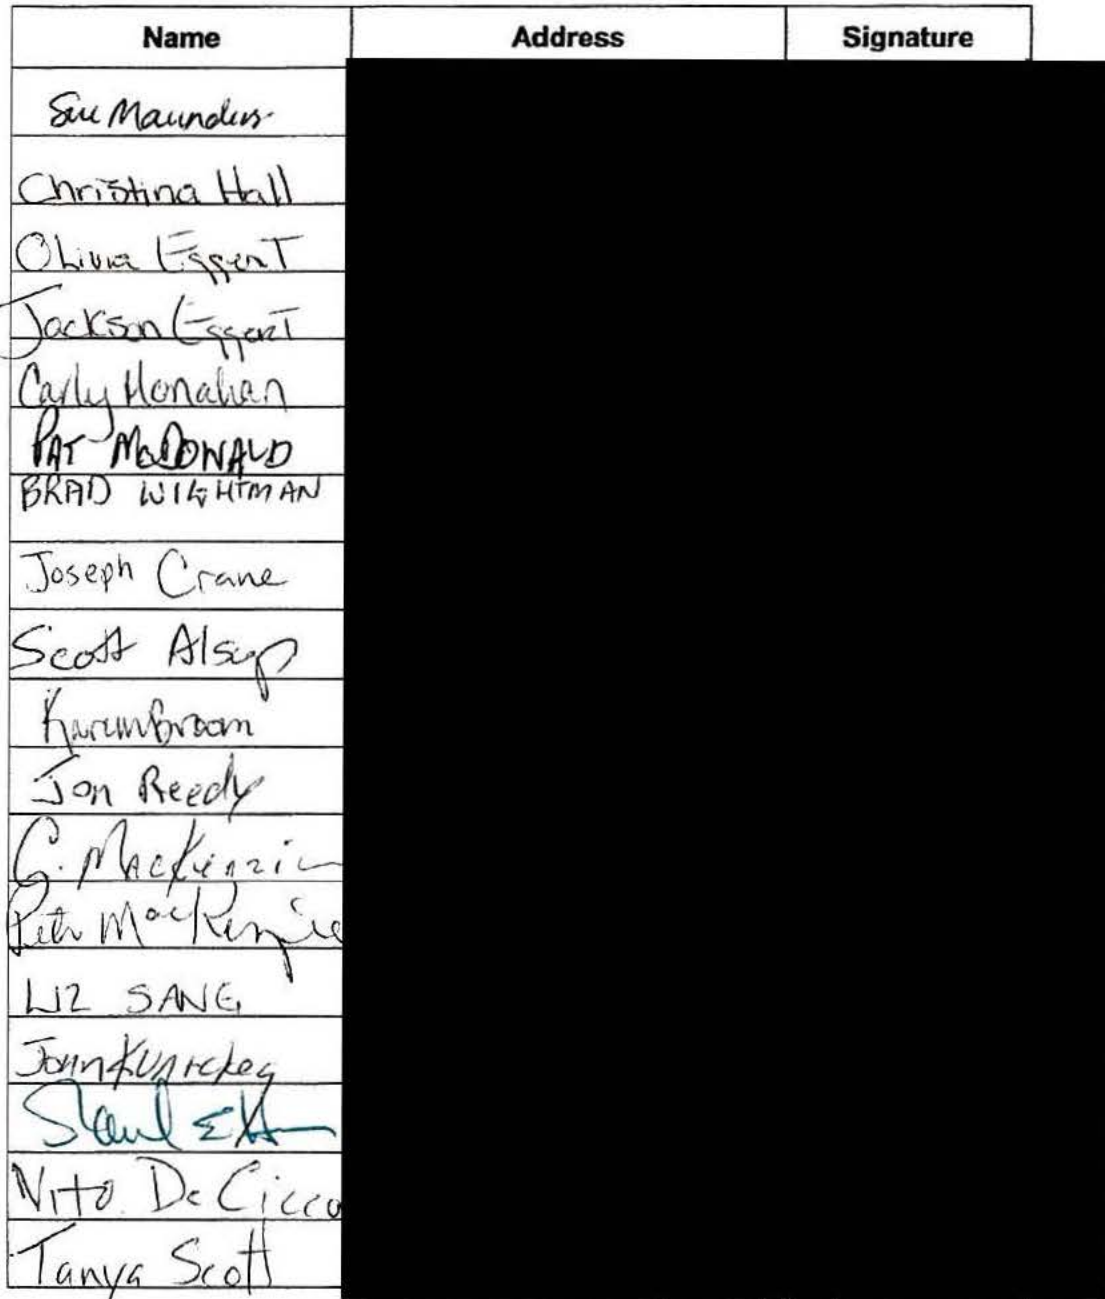 Name Address Signature
Sue Maunders
Christina Hall
Olivia Eggert
Jackson Eggert
Carly Monahan
PAT McDONALD
BRAD WIGHTMAN
Joseph Crane
Scott Alsup
Karen Broom
Jon Reedy
G. MacKenzie
Peter MacKenzie
LIZ SANG
John
Vito De Cicco
Tanya Scott